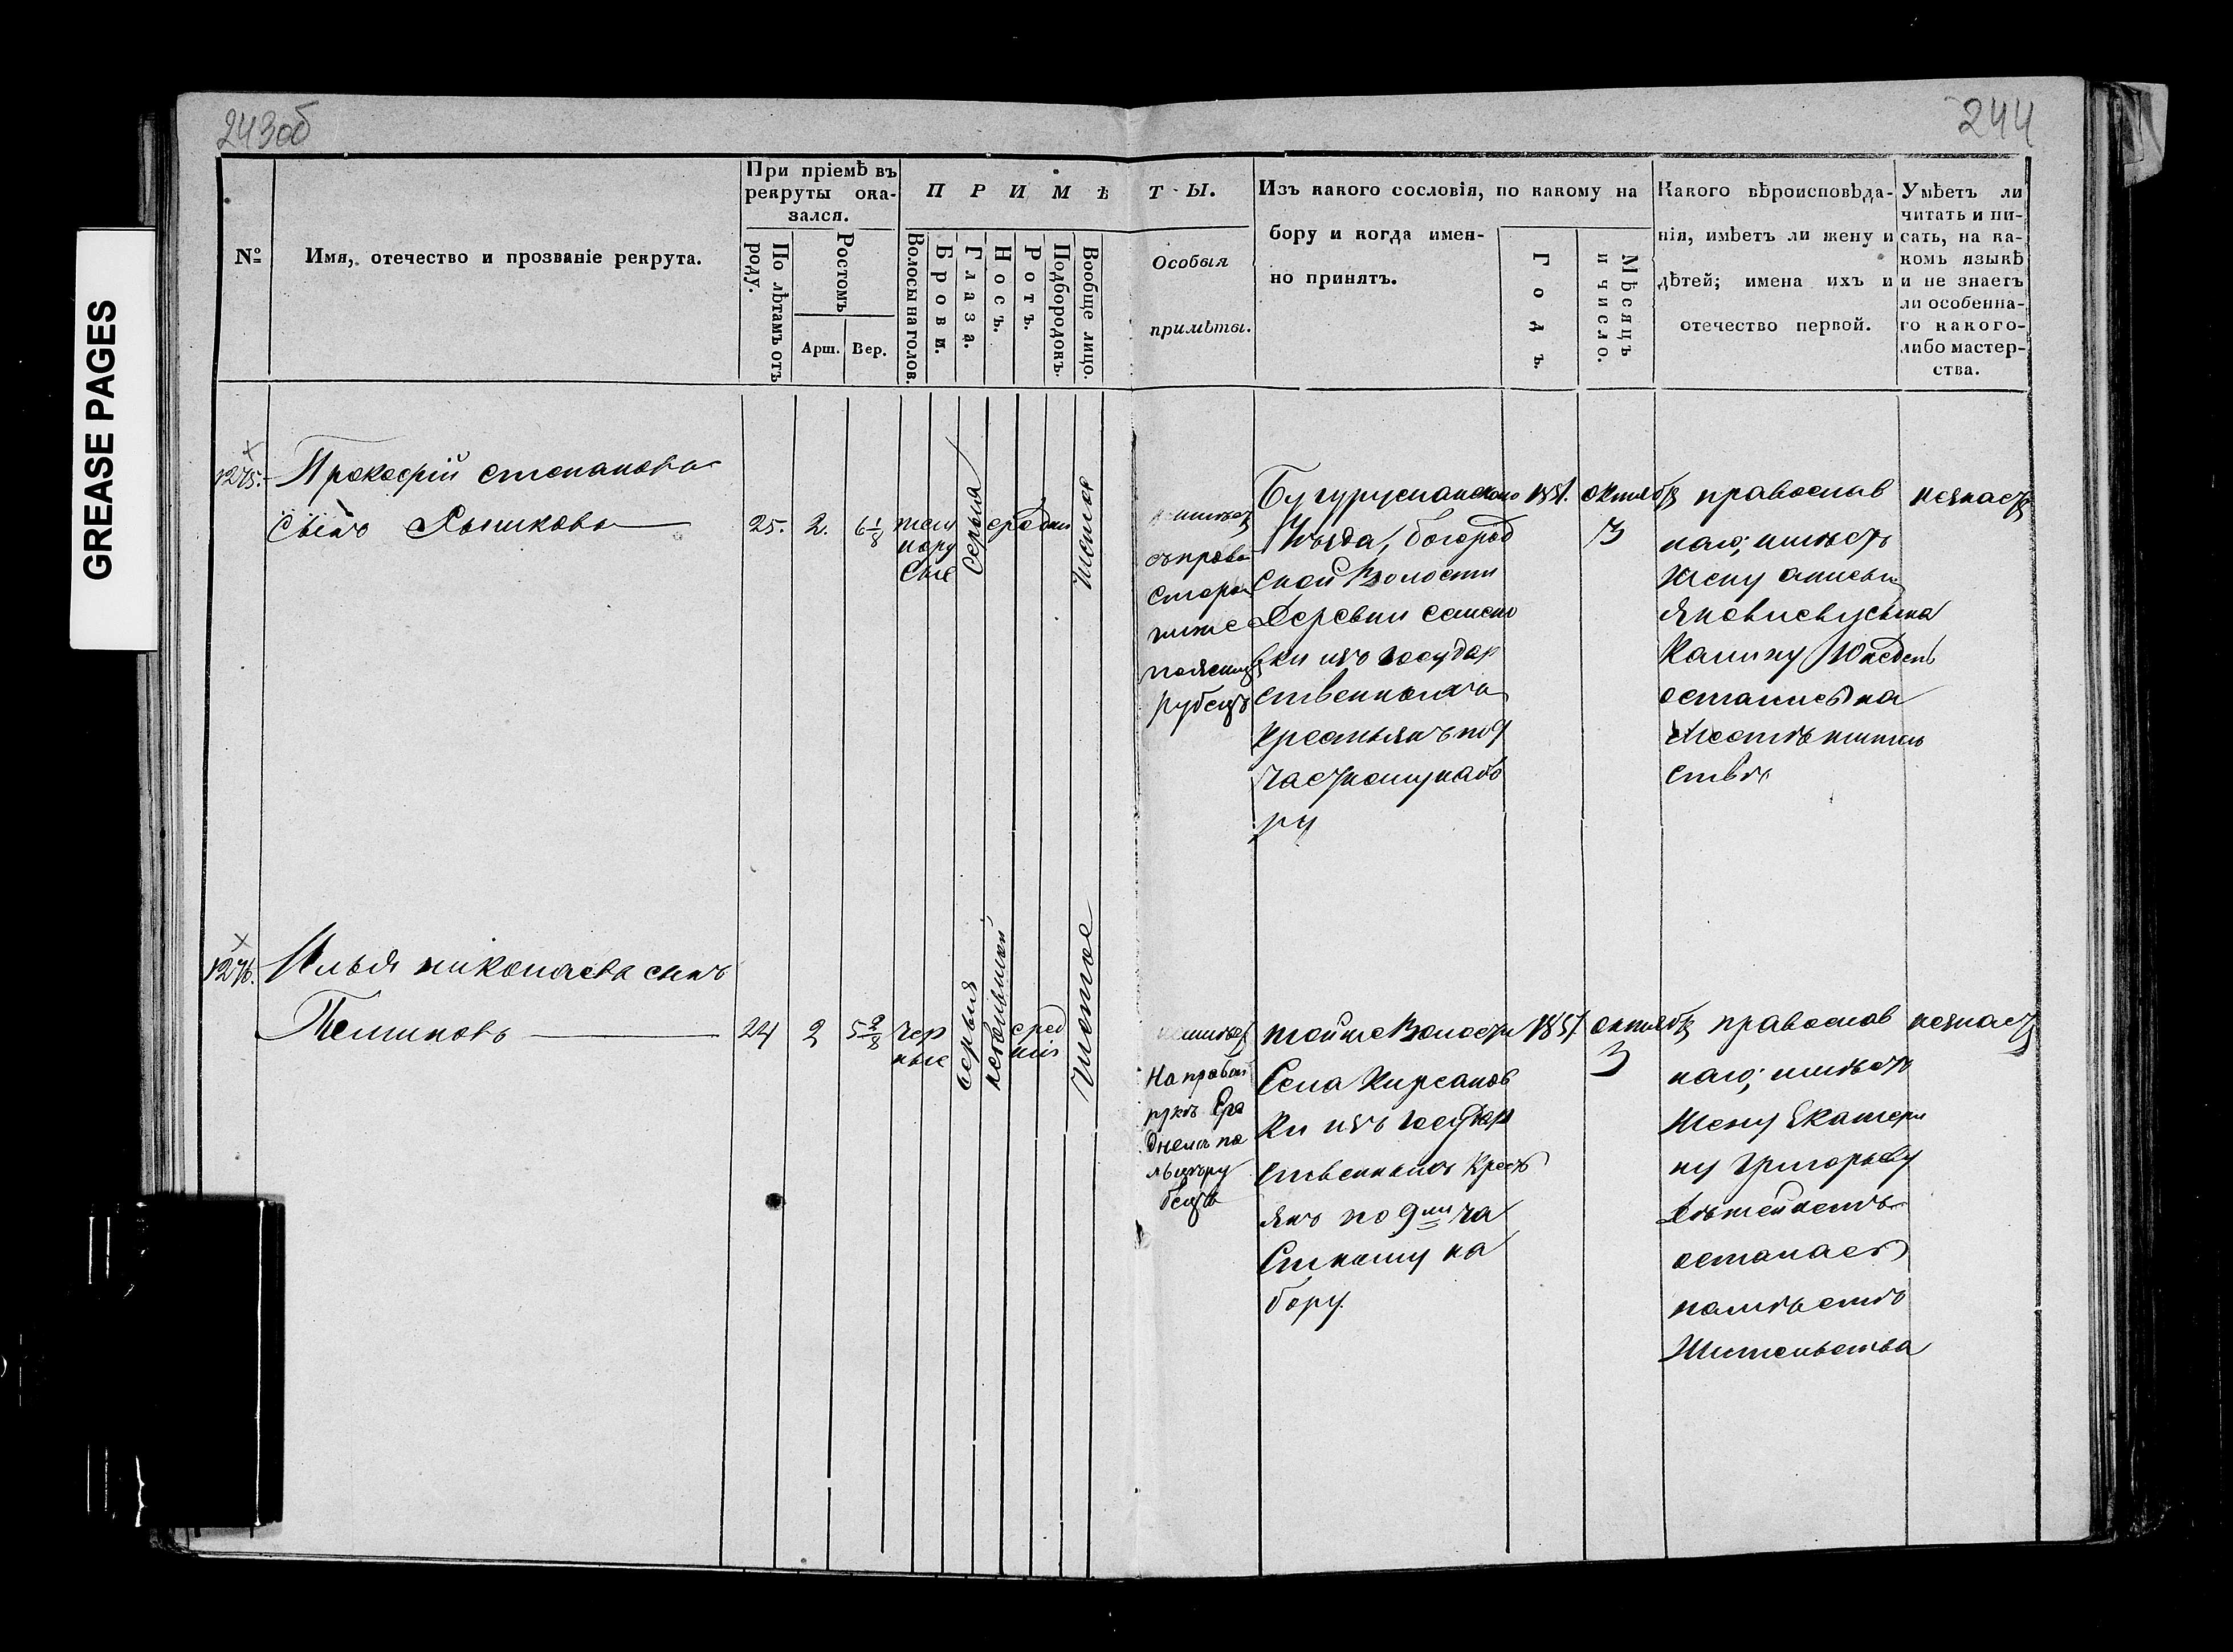 243об
244
GREASE PAGES
№
Имя, отечество и прозваніе рекрута.
При пріемѣ въ
рекруты ока-
зался.
По лѣтамъ отъ
роду.
Ростомъ
Арш.
Вер.
ПРИМѢТЫ.
Волосы на голов.
Брови.
Глаза.
Носъ.
Ротъ.
Подбородокъ.
Вообще лицо.
Особыя
примѣты.
Изъ какого сословія, по какому на
бору и когда имен-
но принятъ.
Годъ.
Мѣсяцъ
и число.
Какого вѣроисповѣда-
нія, имѣетъ ли жену и
дѣтей; имена ихъ и
отечество первой.
Умѣетъ ли
читать и пи-
сать, на ка-
комъ языкѣ
и не знаетъ
ли особенна-
го какого-
либо мастер-
ства.
1275.
Прокофій степановъ
сынъ
25. 2. 6 1/8
темн
нору
сые
серыя
средни
чистое
имѣет
съправ
сторон
ниже
поясниц
рубецъ
Бугурусланского
Уѣзда, богород
ской Волости
Деревни семено
вки изъ государ
ственныхъ
крестьянъ по 9
частному набо
ру
1851. октяб
3
православ
наго; имѣетъ
жену
остались на
мѣстѣ житель
ства
незнает
1276.
Илья николаевъ сынъ
24 2 5 2/8
чер
ные
серыя
небольшой
сред
нія
чистое
имѣет
На правой
рукѣ Сре
днемъ па
льцѣ ру
бецъ
тойже Волости
Села Кирсанов
ки изъ государ
ственныхъ Крест
янъ по 9ми ча
стному на
бору.
1851 октяб
3
православ
наго; имѣетъ
жену Екатери
ну Григорьеву
дѣтей нетъ
осталась
намѣстѣ
Жительства
незнает